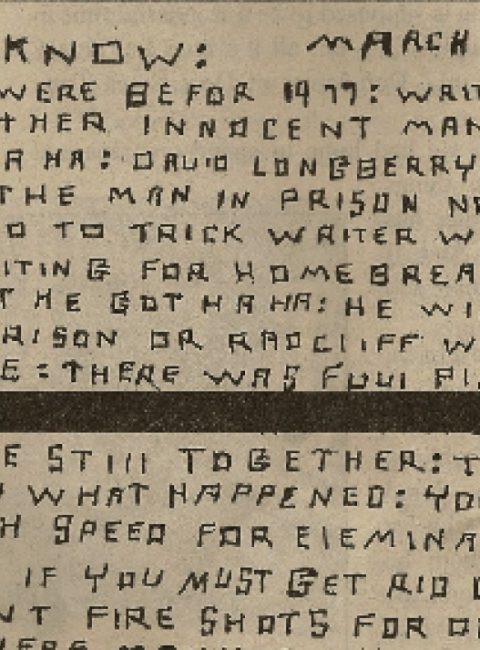 KNOW: MARCH
WERE BEFOR 1977: WRIT
THER INNOCENT MAN
A HA: DAVID LONGBERRY
THE MAN IN PRISON N
O TO TRICK WRITER W
ITING FOR HOMEBREA
T HE GOT HA HA: HE WI
RISON OR RADCLIFF W
E: THERE WAS FOUL PL
E STILL TOGETHER: T
WHAT HAPPENED: YO
H SPEED FOR ELEMINA
IF YOU MUST GET RID
NT FIRE SHOTS FOR